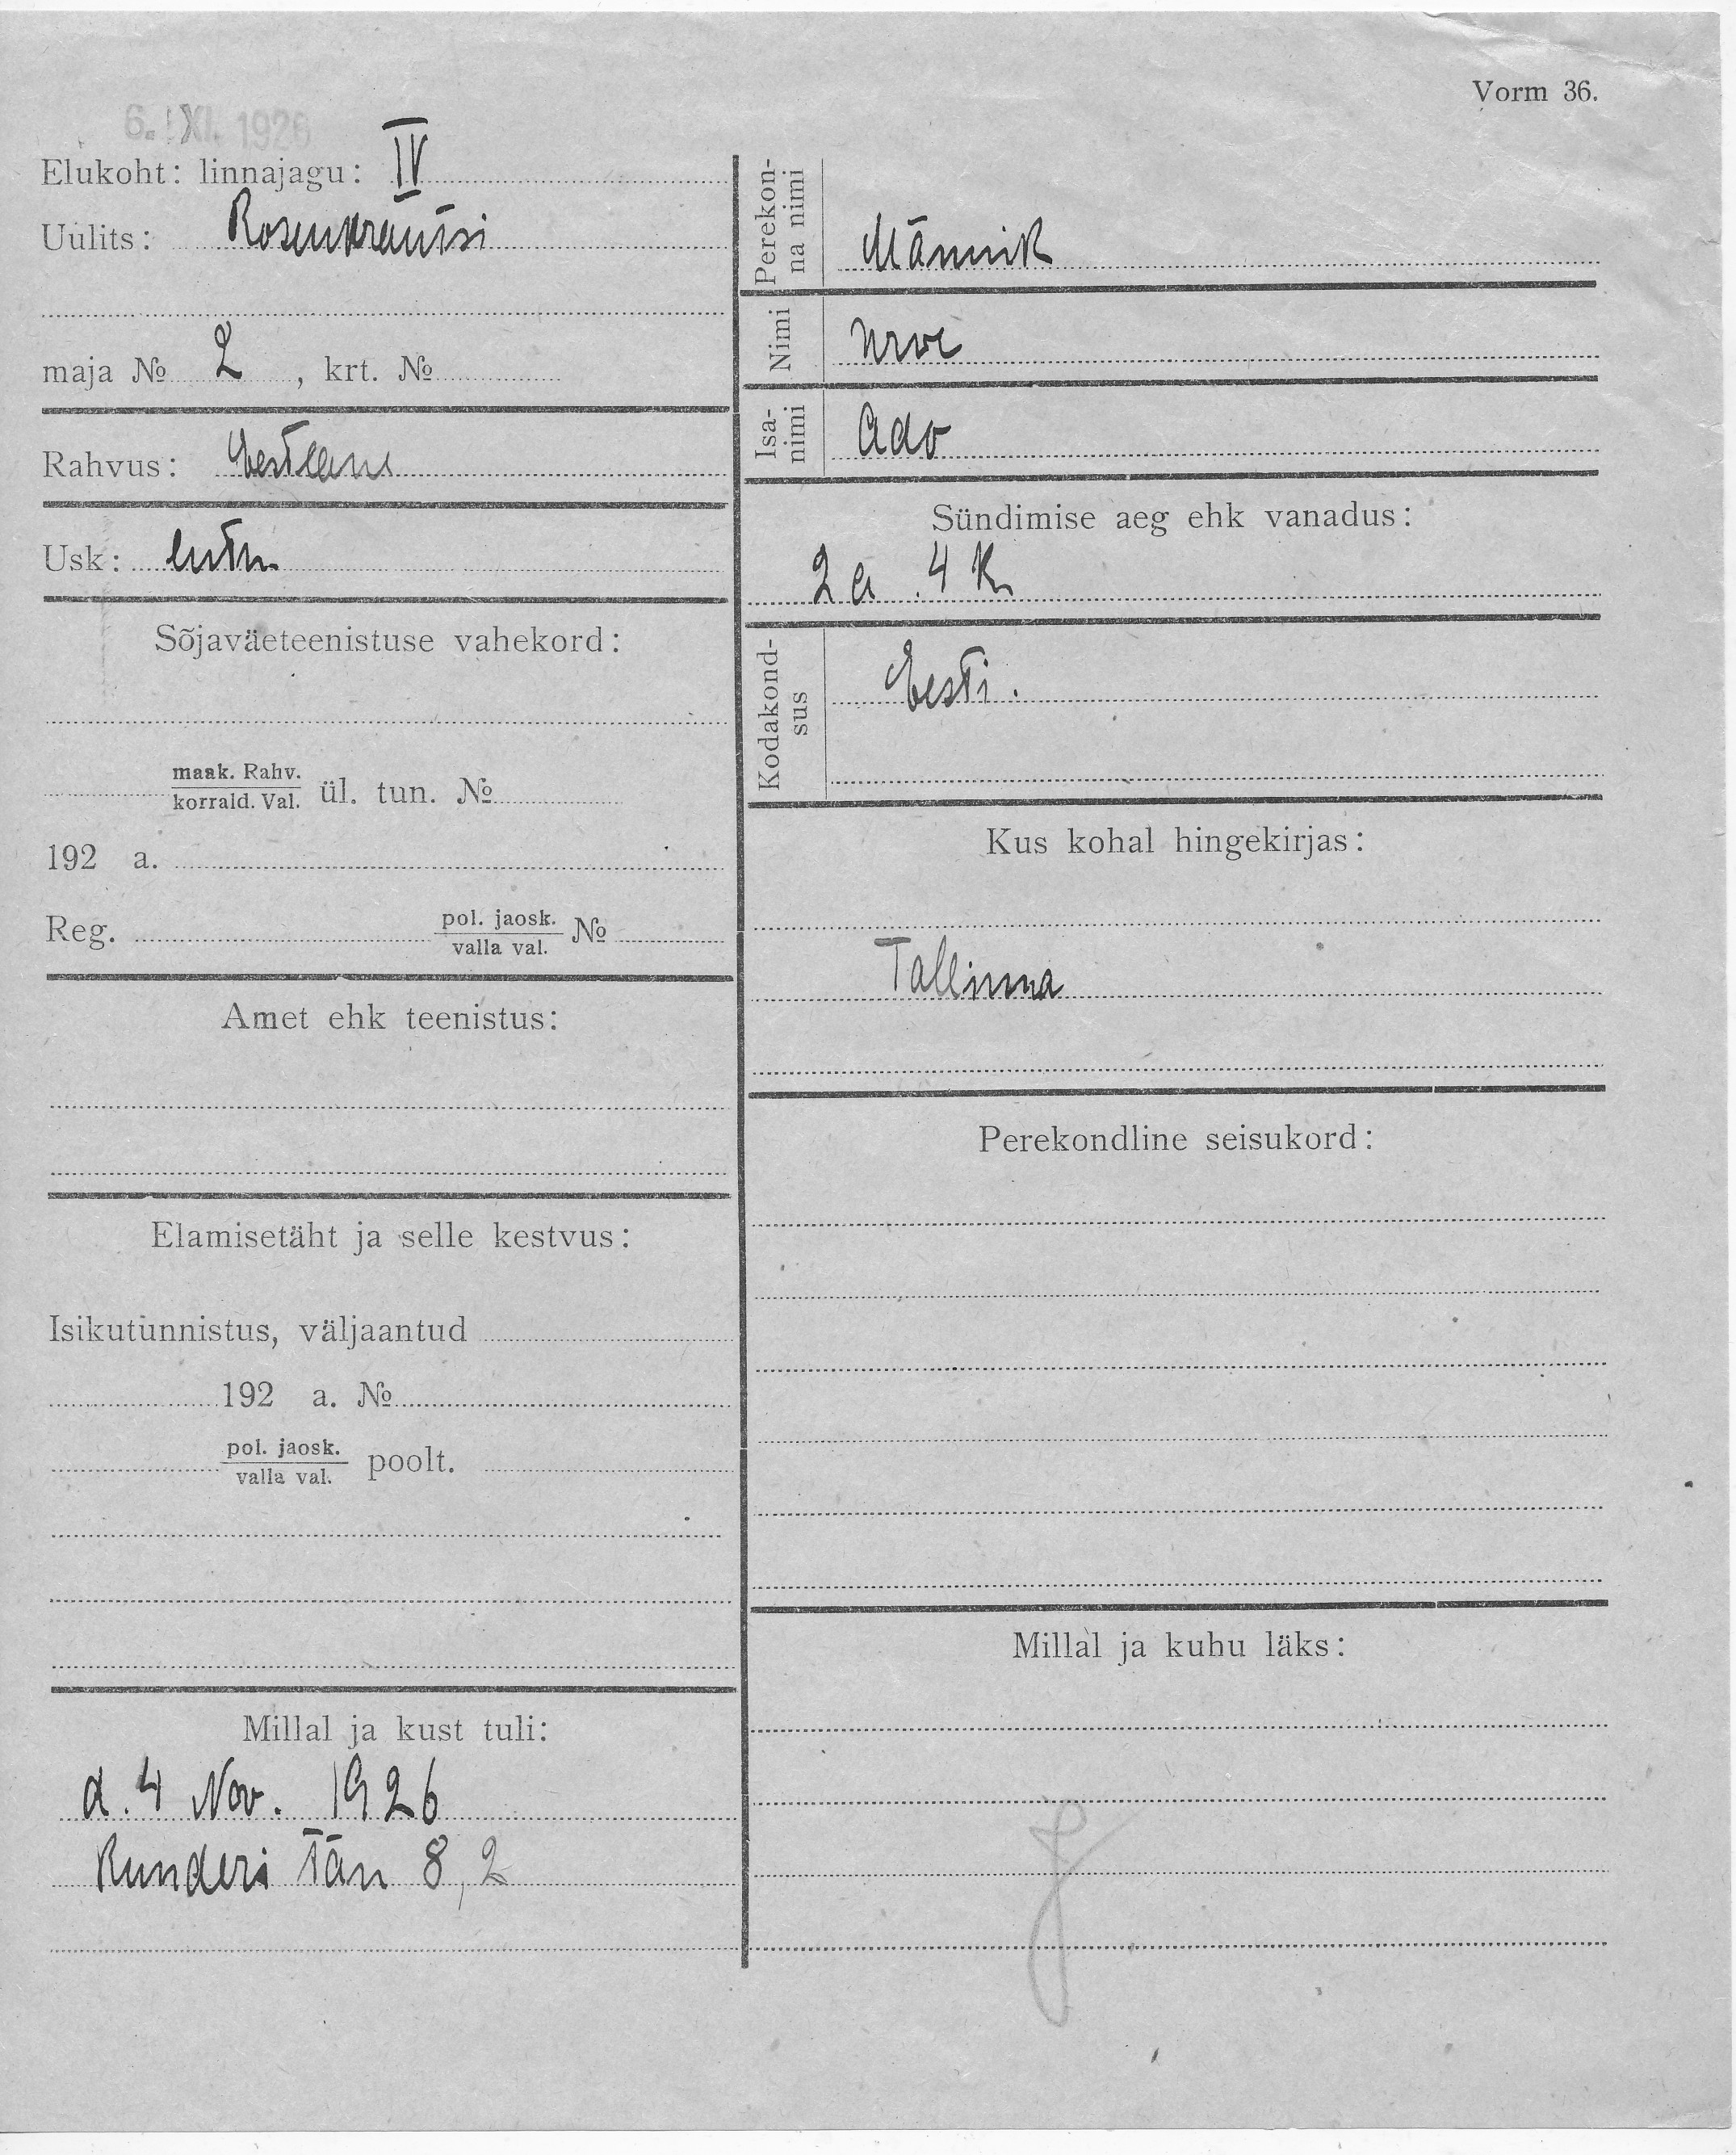 Vorm 36.
6. XI. 1926
Elukoht: linnajagu: IV
Uulits: Rosenkrantsi
maja № 2, krt. №
Rahvus: Eestlane
Usk: luth.
Sõjaväeteenistuse vahekord:
maak. Rahv.
korrald. Val. ül. tun. №
192 a.
Reg. pol. jaosk.
valla val. №
Amet ehk teenistus:
Elamisetäht ja selle kestvus:
Isikutunnistus, väljaantud
192 a. №
pol. jaosk.
valla val. poolt.
Millal ja kust tuli:
d. 4 Nov. 1926
Kunderi tän 8, 2
Perekon-
na nimi
Männik
Nimi
Urve
Isa-
nimi
Ado
Sündimise aeg ehk vanadus:
2 a. 4 k.
Kodakond-
sus
Eesti.
Kus kohal hingekirjas:
Tallinna
Perekondline seisukord:
Millal ja kuhu läks: